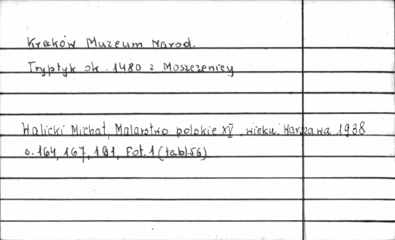 Kraków Muzeum Narod.
Tryptyk ok. 1480 z Moszczenicy
Walicki Michał, Malarstwo polskie XV wieku. Warszawa 1938
s. 164, 167, 191, Fot. 1 (tabl. 56)